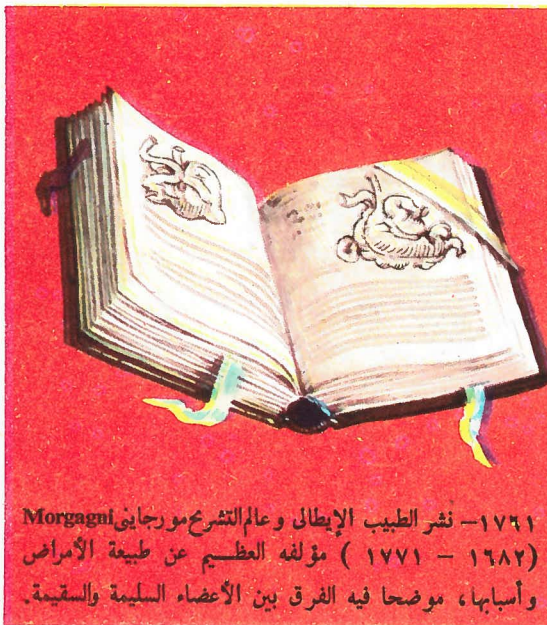 ١٧٦١– نشر الطبيب الإيطالى وعالم التشريح مورجاينى Morgagni
(١٦٨٢ – ١٧٧١ ) مؤلفه العظـــيم عن طبيعة الأمراض
وأسبابها، موضحا فيه الفرق بين الأعضاء السليمة والسقيمة.